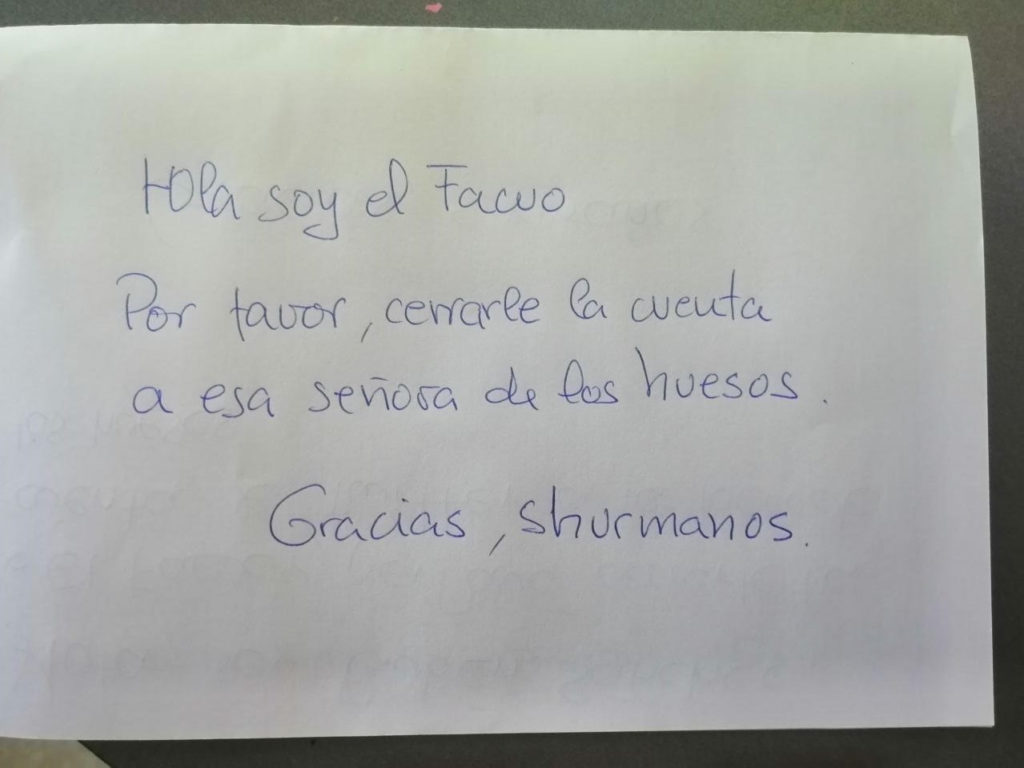 Hola soy el Facuo
Por favor, cerrarle la cuenta
a esa señora de los huesos.
Gracias, shurmanos.